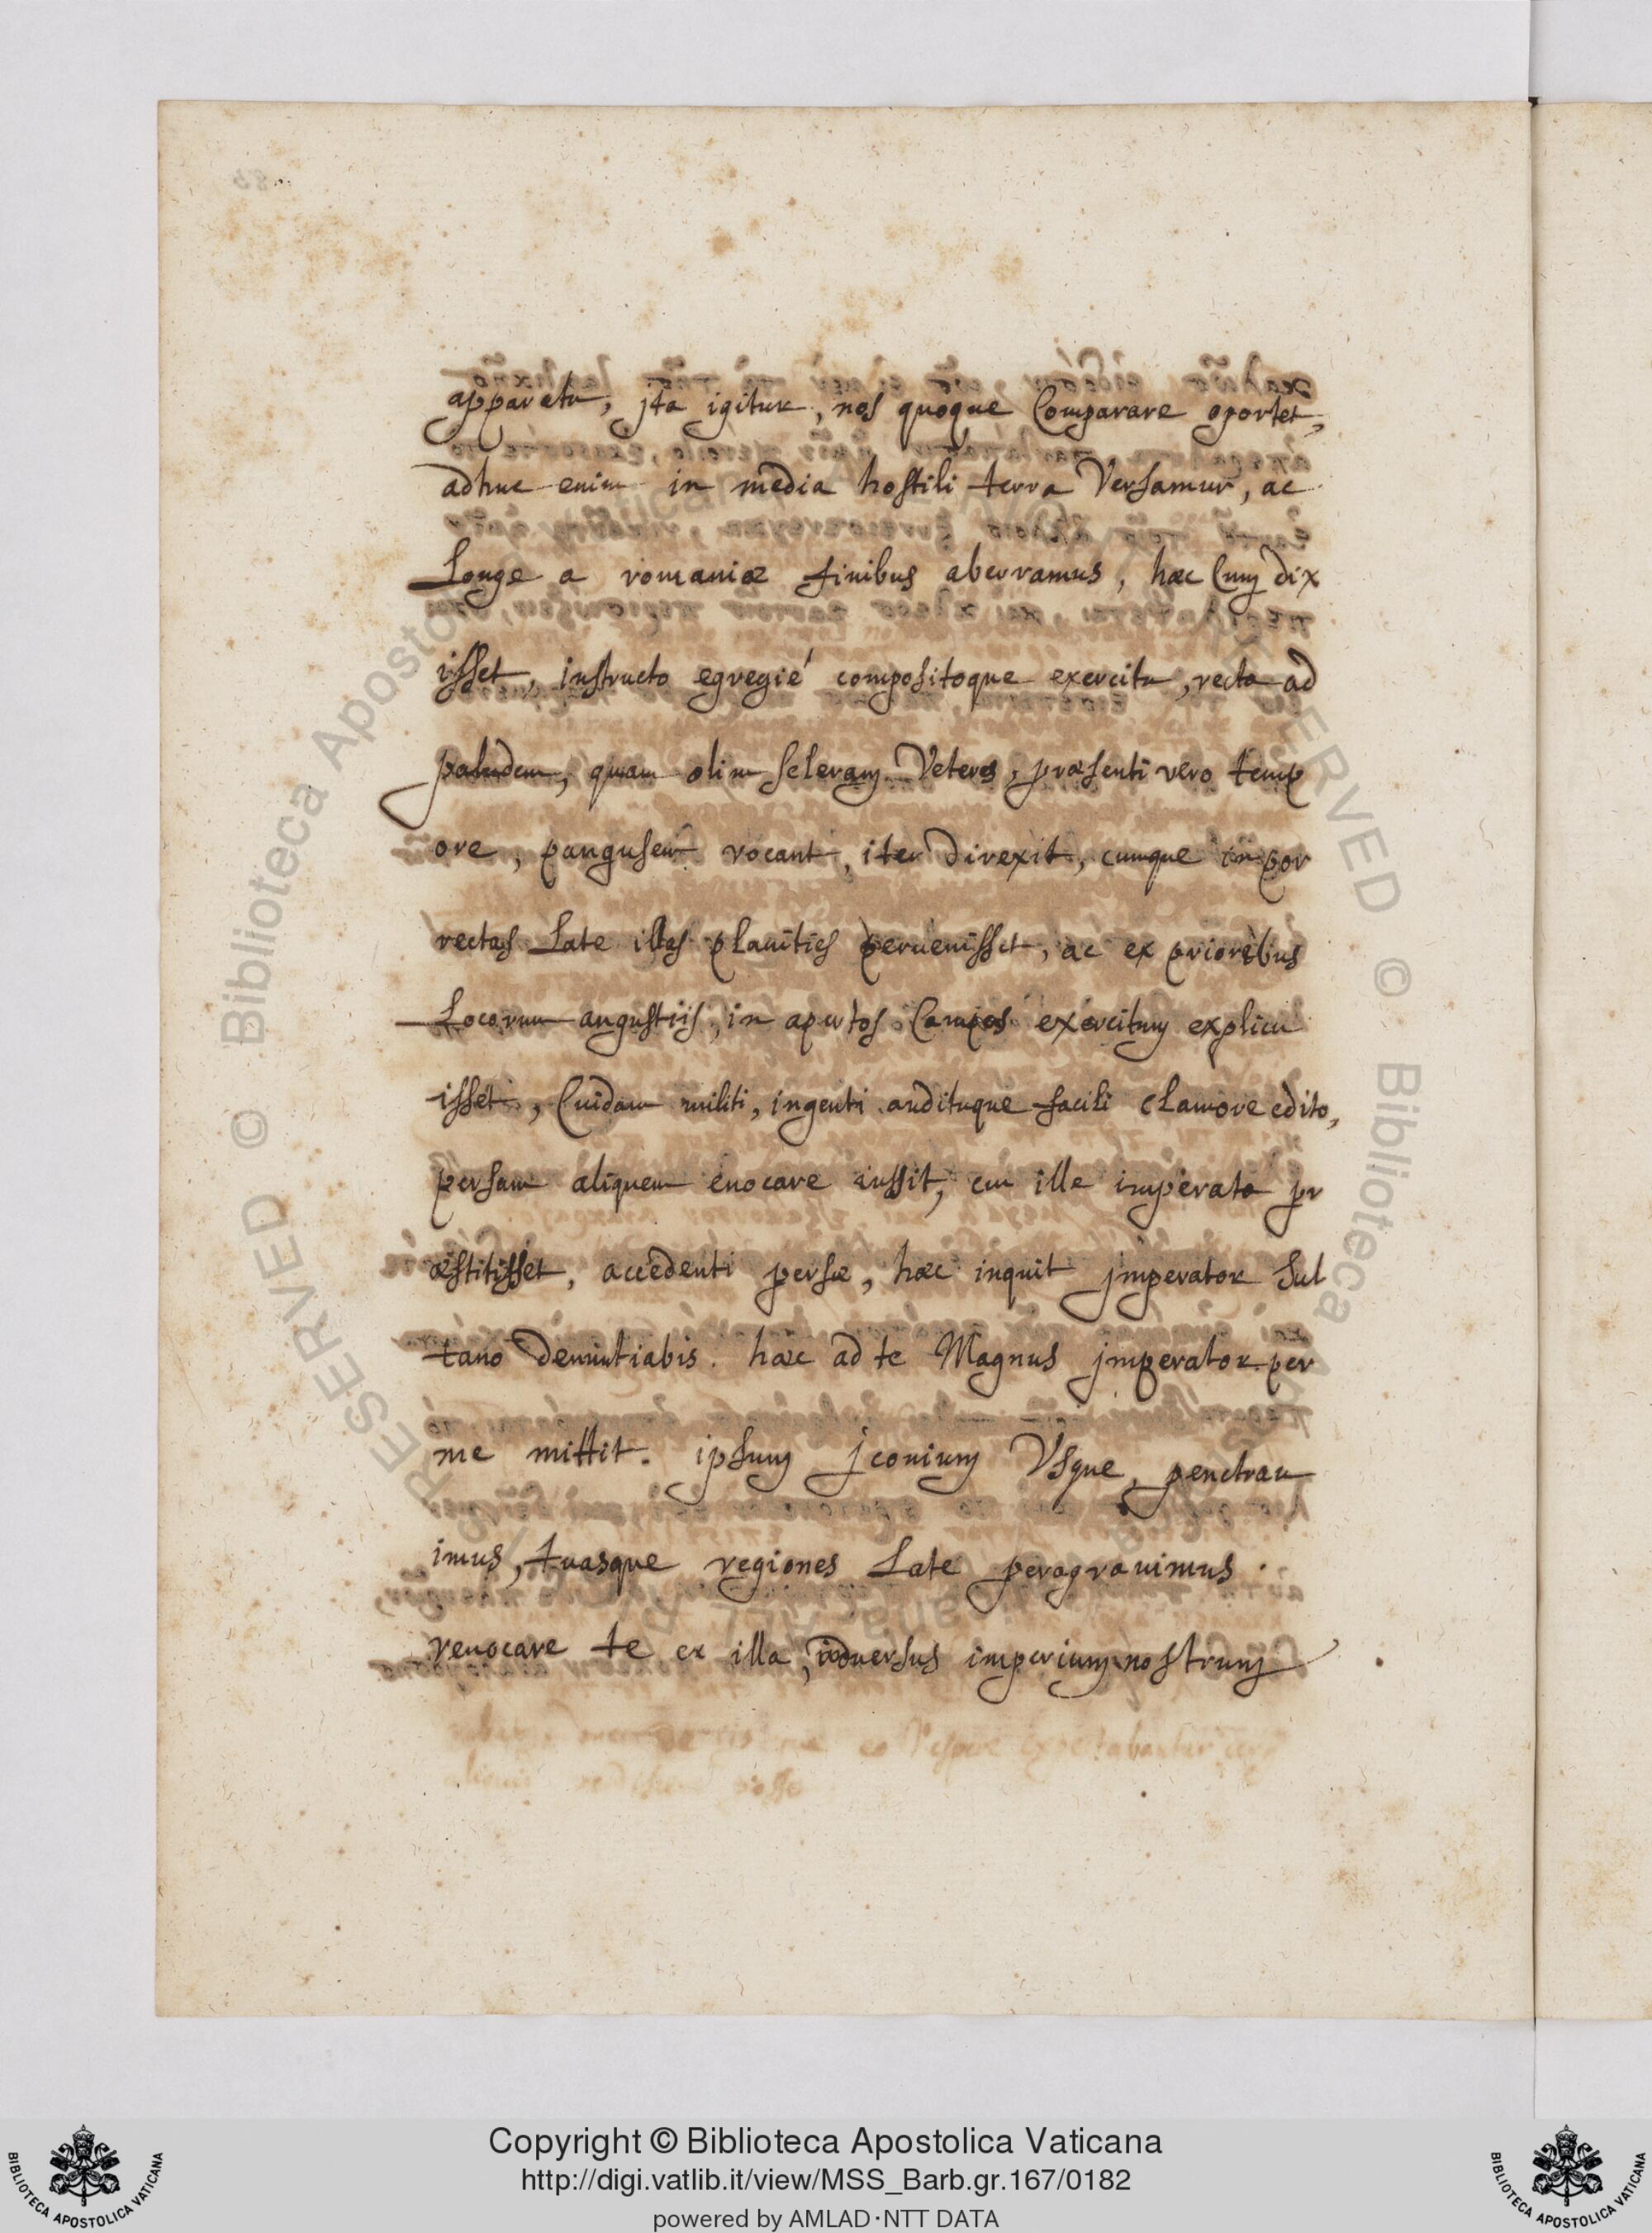 apparatu, jta igitur, nos quoque Comparare oportet,
adhuc enim in media hostili terra Versamur, ac
Longe a romaniæ finibus aberramus, hæc Cum dix
isset, instructo egregié compositoque exercitu, recta ad
paludem, quam olim scleram Veteres, præsenti vero temp
ore, pangusem vocant, iter direxit, cumque in por
rectas Late illas planities peruenisset, ac ex prioribus
Locorum angustiis, in apertos Campos exercitum explicu
isset, Cuidam militi, ingenti audituque facili clamore edito,
persam aliquem euocare iussit, cui ille imperata pr
æstitisset, accedenti persæ, hæc inquit jmperator Sul
tano denuntiabis. hæc ad te Magnus jmperator per
me mittit. ipsum jconium Vsque, penetrau
imus, tuasque regiones Late peragrauimus.
reuocare te ex illa, aduersus imperium nostrum
© Biblioteca Apostolica Vaticana
RESERVED
© Biblioteca
Copyright © Biblioteca Apostolica Vaticana
http://digi.vatlib.it/view/MSS_Barb.gr.167/0182
powered by AMLAD·NTT DATA
BIBLIOTECA APOSTOLICA VATICANA
BIBLIOTECA APOSTOLICA VATICANA